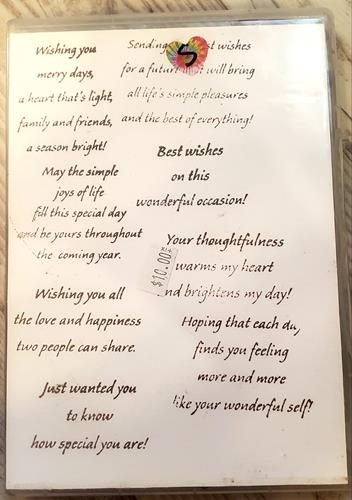 Wishing you
merry days,
a heart that's light,
family and friends,
a season bright!
May the simple
joys of life
fill this special day
and be yours throughout
the coming year.
Wishing you all
the love and happiness
two people can share.
Just wanted you
to know
how special you are!
Sending st wishes
for a future t will bring
all life's simple pleasures
and the best of everything!
S
Best wishes
on this
wonderful occasion!
Your thoughtfulness
warms my heart
nd brightens my day!
$10.00
Hoping that each day
finds you feeling
more and more
like your wonderful self!